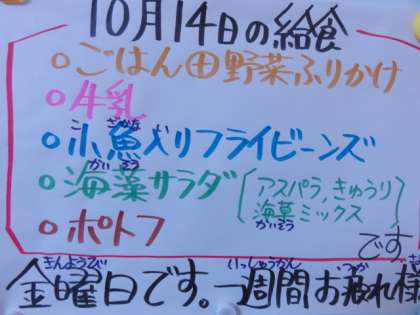 10月14日の給食
○ごはん田野菜ふりかけ
○牛乳
○小魚入りフライビーンズ
こ ざかな い
○海藻サラダ
かいそう
アスパラ,きゅうり
海草ミックス
かいそう
○ポトフ
です
金曜日です。一週間お疲れ様
きんようび いっしゅうかん つか